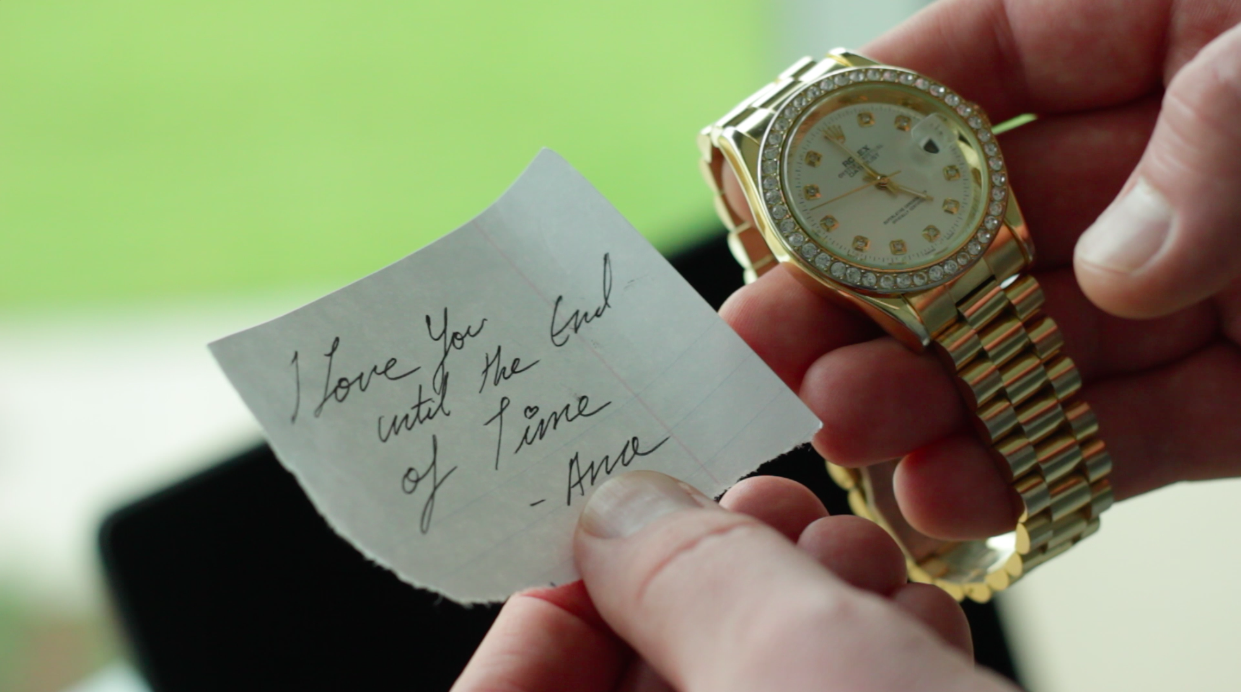 I Love You
until the End
of Time
- Ana
ROLEX